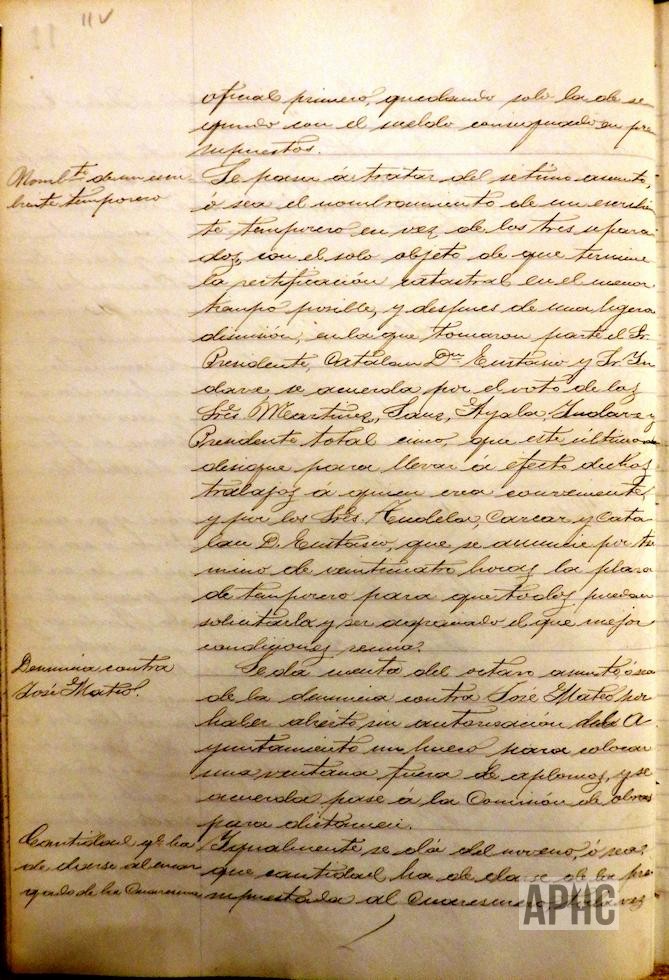 11v
oficial primero, quedando solo la de se-
gundo con el sueldo consignado en pre
supuestos.
Nombto de un escri
biente temporero
Se pasa á tratar del sétimo asunto,
ó sea el nombramiento de un escribien
te temporero en vez de los tres separa
dos, con el solo objeto de que termine
la rectificación catastral en el menor
tiempo posible, y despues de una ligera
discusión, en la que tomaron parte el Sr.
Presidente, Catalan Dn Eustasio y Sr. In
dave, se acuerda por el voto de los
Srés Martinez, Sanz, Ayala, Indave y
Presidente total cinco, que este último
designe para llevar á efecto dichos
trabajos á quien crea conveniente,
y por los Srés. Audela, Carcar y Cata
lan D. Eustasio, que se anuncie por tér
mino de veinticuatro horas la plaza
de temporero para que todos puedan
solicitarla y ser agraciado el que mejor
condiciones reuna.
Denuncia contra
José Mateo.
Se da cuenta del octavo asunto ó sea
de la denuncia contra José Mateo, por
haber abierto sin autorización del A
yuntamiento un hueco para colocar
una ventana fuera de aplomo, y se
acuerda pase á la Comisión de obras
para dictamen.
Cantidad qe ha
de darse al encar
gado de la Cuaresma
Igualmente, se dá del noveno, ó sea,
que cantidad ha de darse de la pre
supuestada al Cuaresmero, toda vez
APHC